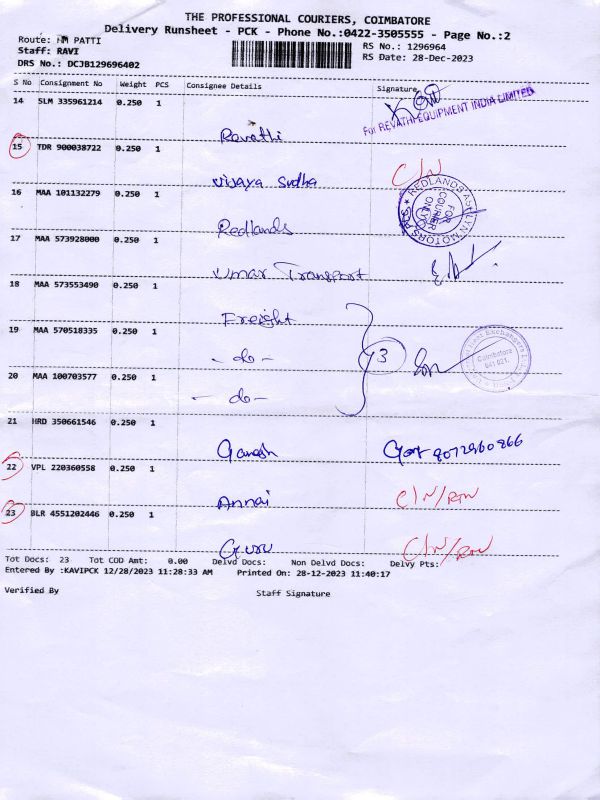 THE PROFESSIONAL COURIERS, COIMBATORE
Delivery Runsheet - PCK - Phone No.:0422-3505555 - Page No.:2
Route: PATTI
Staff: RAVI
DRS No.: DCJB129696402
RS No.: 1296964
RS Date: 28-Dec-2023
S No Consignment No Weight PCS Consignee Details Signature
14 SLM 335961214 0.250 1
For REVATHI EQUIPMENT INDIA LIMITED
Revathi
15 TDR 900038722 0.250 1
Vijaya Sudha C/N
16 MAA 101132279 0.250 1
REDLANDS MOTORS
FOR COURIER ONLY
Redlands
17 MAA 573928000 0.250 1
Umar Transport
18 MAA 573553490 0.250 1
Freight
19 MAA 570518335 0.250 1
- do - 3
Coimbatore
641 021
20 MAA 100703577 0.250 1
- do -
21 HRD 350661546 0.250 1
Ganesh 8072960866
22 VPL 220360558 0.250 1
Annai C/N/RTN
23 BLR 4551202446 0.250 1
Guru C/N/RTN
Tot Docs: 23 Tot COD Amt: 0.00 Delvd Docs: Non Delvd Docs: Delvy Pts:
Entered By :KAVIPCK 12/28/2023 11:28:33 AM Printed On: 28-12-2023 11:40:17
Verified By Staff Signature